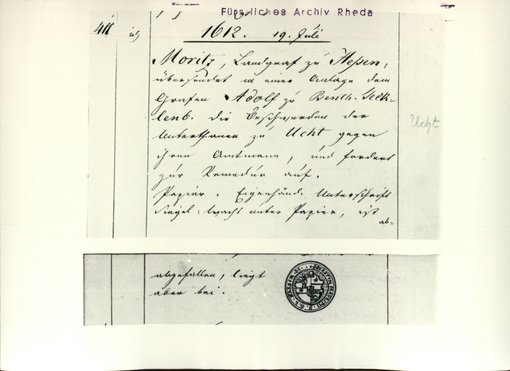 Fürstliches Archiv Rheda
411
1612. 19. Juli
Moritz, Landgraf zu Hessen,
übersendet in einer Anlage dem
Grafen Adolf zu Benth. Teck-
lenb. die Beschwerden der
Unterthanen zu Ucht gegen
ihren Amtmann, und fordert
zur Remedur auf.
Papier. Eigenhänd. Unterschrift
Siegel: Wachs unter Papier, ist
ab-
Ucht
abgefallen, liegt
aber bei.